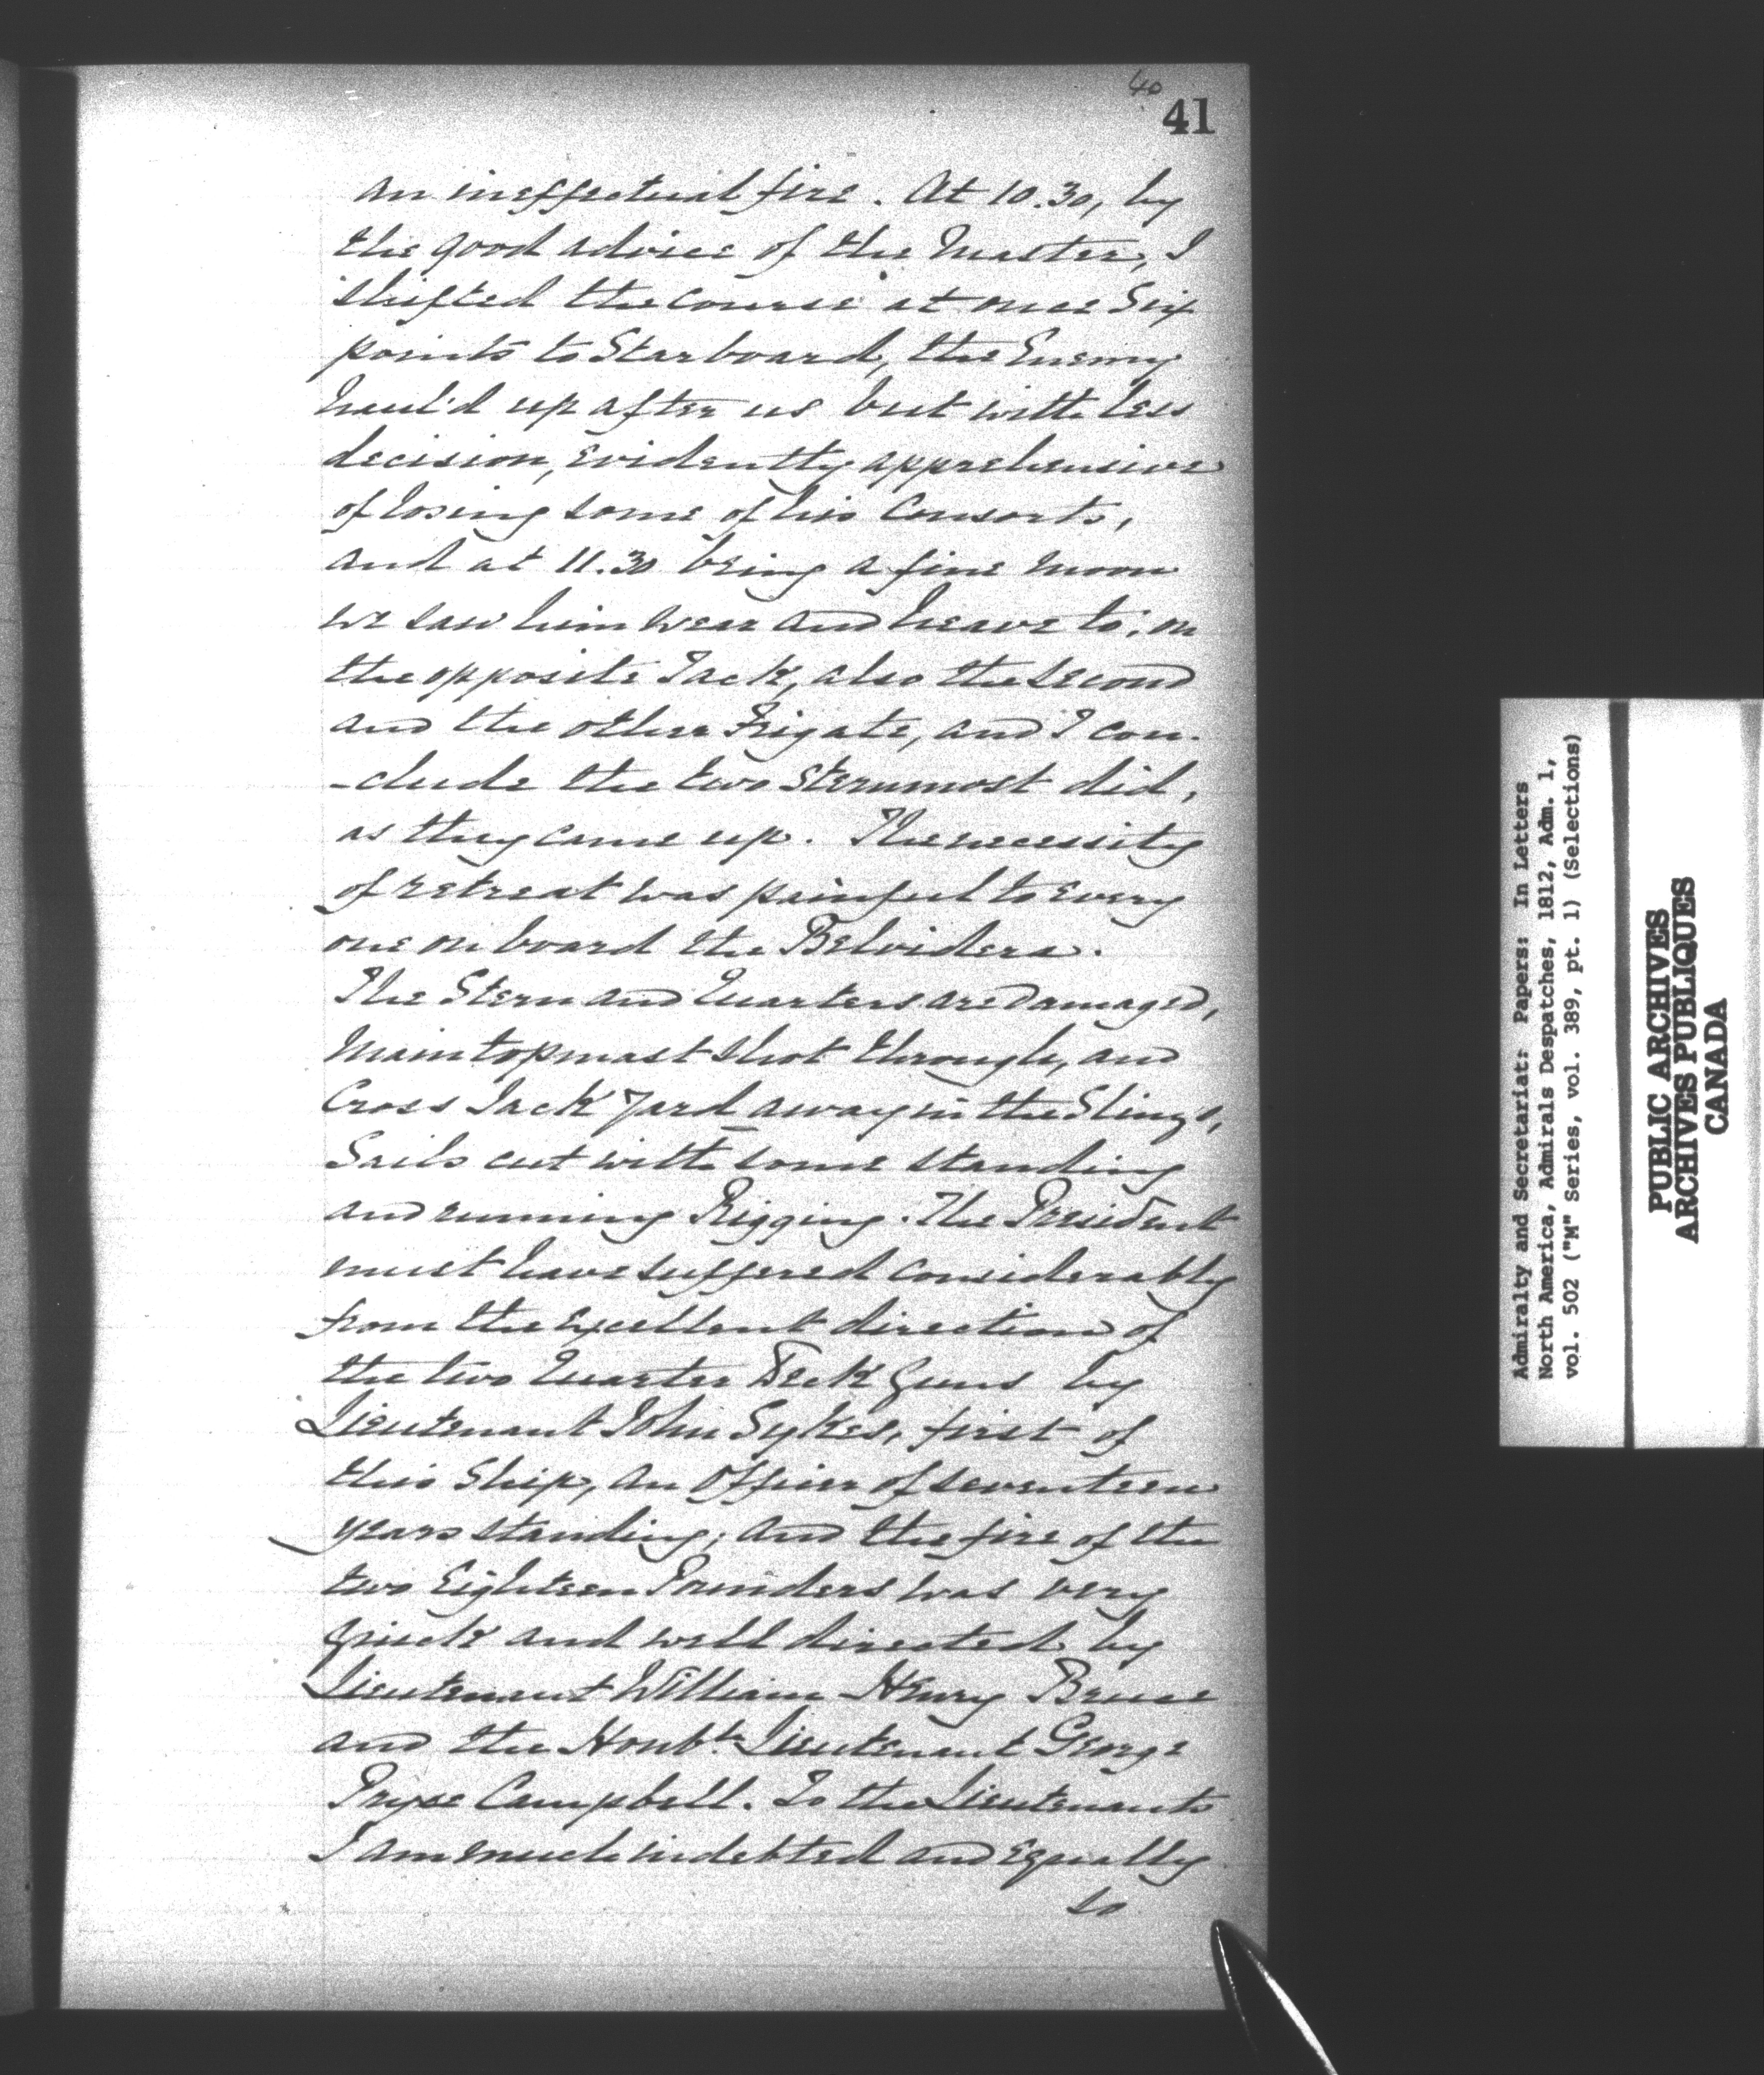 40
41
an ineffectual fire. At 10.30, by
the good advice of the Master, I
shifted the Course at once Six
points to Starboard, the Enemy
haul'd up after us but with less
decision, evidently apprehensive
of losing some of his Consorts,
and at 11.30 being a fine moon
we saw him wear and heave to; on
the opposite Tack, also the second
and the other Frigate, and I con-
-clude the two sternmost did,
as they came up. The necessity
of retreat was painful to every
one on board the Belvidera.
The Stern and Quarters are damaged,
Maintopmast shot through, and
Cross Jack Yard away in the Slings,
Sails cut with some standing
and running Rigging. The President
must have suffered considerably
from the excellent direction of
the two Quarter Deck Guns by
Lieutenant John Sykes, first of
this Ship, an Officer of seventeen
years standing; and the fire of the
two Eighteen Pounders was very
quick and well directed by
Lieutenant William Henry Bruce
and the Honble. Lieutenant George
Pryse Campbell. To the Lieutenants
I am much indebted and equally
so
Admiralty and Secretariat: Papers: In Letters
North America, Admirals Despatches, 1812, Adm. 1,
vol. 502 ("M" Series, vol. 389, pt. 1) (Selections)
PUBLIC ARCHIVES
ARCHIVES PUBLIQUES
CANADA